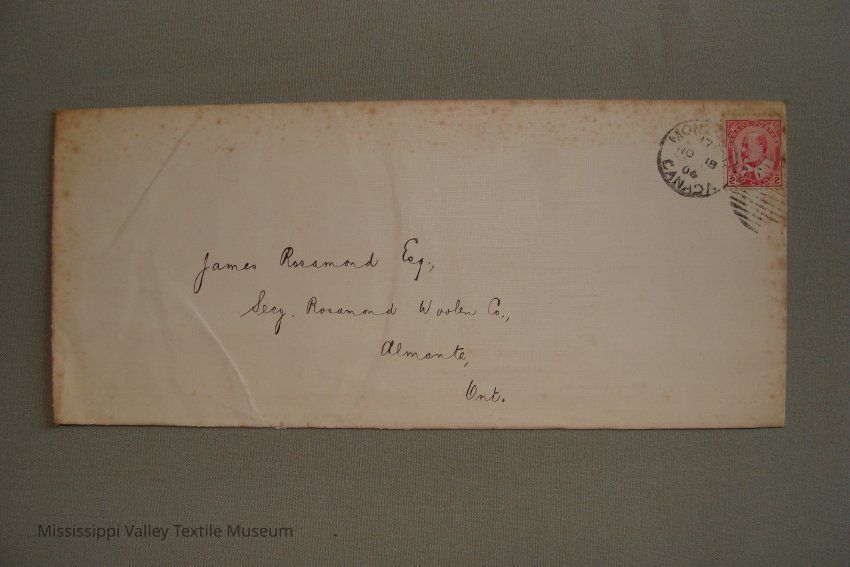 MON
17
NO 18
04
CANADA
CANADA POSTAGE
2 CENTS 2
James Rosamond Esq.,
Secy. Rosamond Woolen Co.,
Almonte,
Ont.
Mississippi Valley Textile Museum